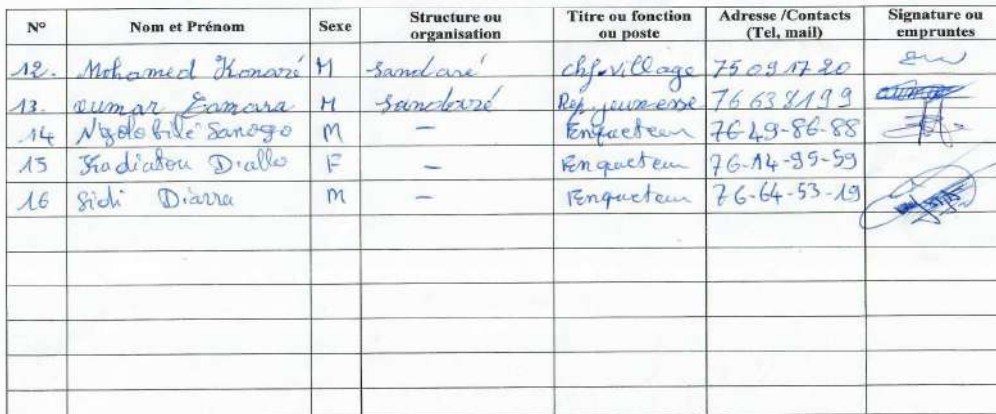 N° Nom et Prénom Sexe Structure ou organisation Titre ou fonction ou poste Adresse /Contacts (Tel, mail) Signature ou empruntes
12. Mohamed Konaré M Sandaré chf. village 75 09 17 20
13. oumar Camara M Sandaré Rep. jeunesse 76 63 81 99
14 Ngolo bilé Sanogo M - Enqueteur 76-49-86-88
15 Kadiatou Diallo F - Enqueteur 76-14-95-59
16 Sidi Diarra M - Enqueteur 76-64-53-19